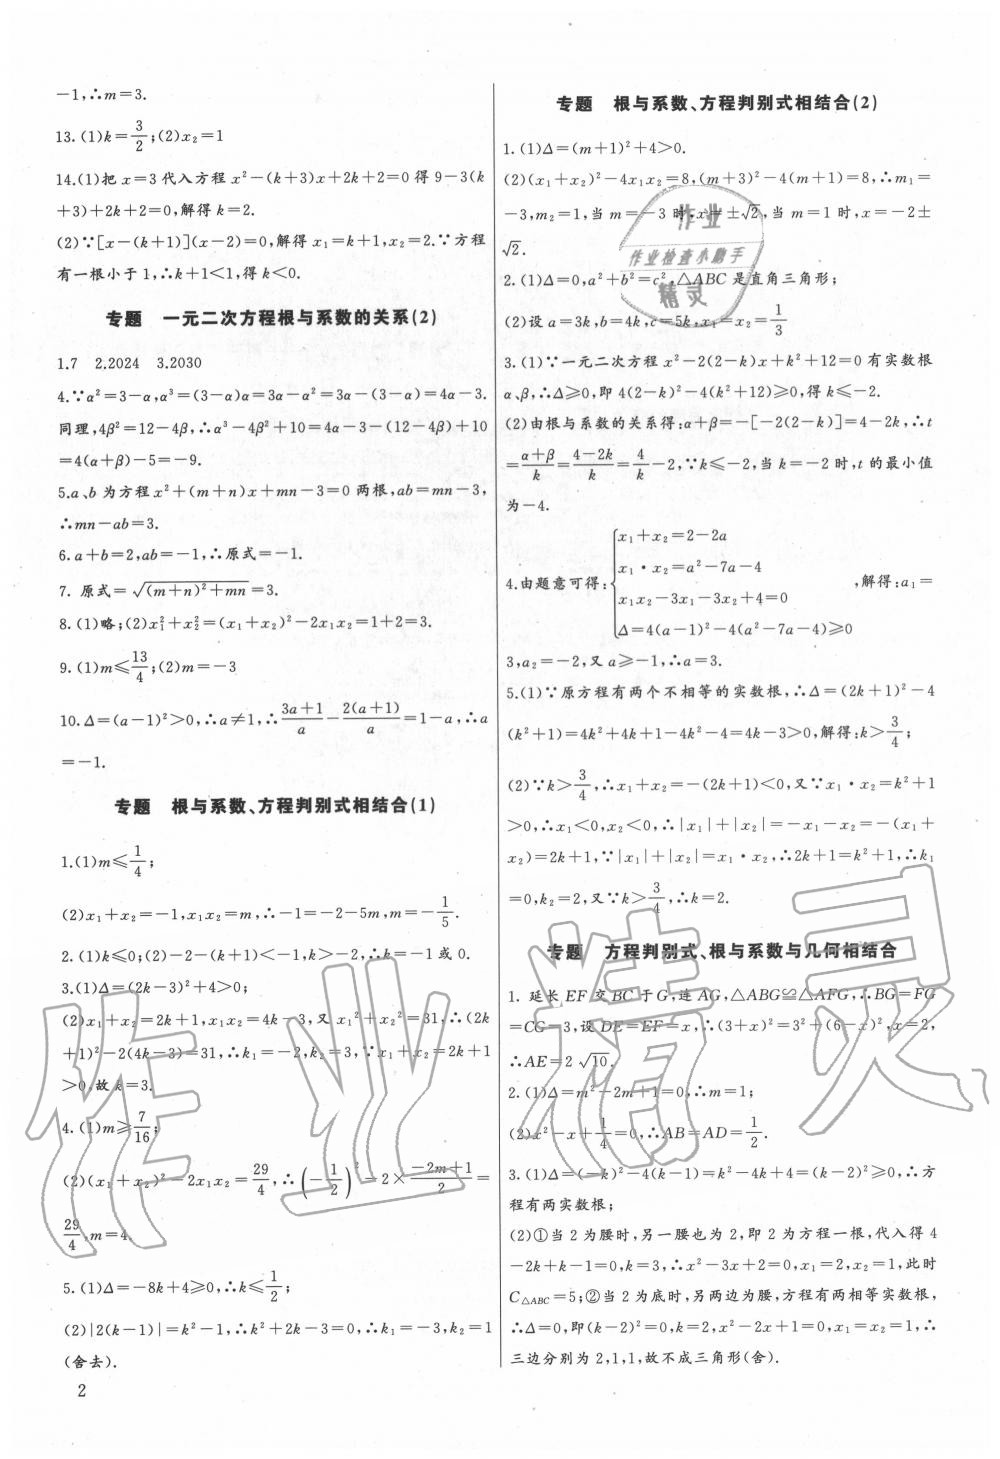 -1,∴m=3.
13.(1)k=3/2;(2)x₂=1
14.(1)把 x=3代入方程 x²-(k+3)x+2k+2=0得9-3(k
+3)+2k+2=0,解得k=2.
(2)∵[x-(k+1)](x-2)=0,解得x₁=k+1,x₂=2.∵方程
有一根小于1,∴k+1<1,得k<0.
专题 一元二次方程根与系数的关系(2)
1.7 2.2024 3.2030
4.∵α²=3-α,α³=(3-α)α=3α-α²=3α-(3-α)=4α-3.
同理,4β²=12-4β,∴α³-4β²+10=4α-3-(12-4β)+10
=4(α+β)-5=-9.
5.a、b为方程x²+(m+n)x+mn-3=0两根,ab=mn-3,
∴mn-ab=3.
6.a+b=2,ab=-1,∴原式=-1.
7. 原式=√((m+n)²+mn)=3.
8.(1)略;(2)x₁²+x₂²=(x₁+x₂)²-2x₁x₂=1+2=3.
9.(1)m≤13/4;(2)m=-3
10.Δ=(a-1)²>0,∴a≠1,∴(3a+1)/a-2(a+1)/a=1-a,∴a
=-1.
专题 根与系数、方程判别式相结合(1)
1.(1)m≤1/4;
(2)x₁+x₂=-1,x₁x₂=m,∴-1=-2-5m,m=-1/5.
2.(1)k≤0;(2)-2-(k+1)<-1,k>-2,∴k=-1或0.
3.(1)Δ=(2k-3)²+4>0;
(2)x₁+x₂=2k+1,x₁x₂=4k-3,又x₁²+x₂²=31,∴(2k
+1)²-2(4k-3)=31,∴k₁=-2,k₂=3,∵x₁+x₂=2k+1
>0,故k=3.
4.(1)m≥7/16;
(2)(x₁+x₂)²-2x₁x₂=29/4,∴(-1/2)²-2×(-2m+1)/2=
29/4,m=4.
5.(1)Δ=-8k+4≥0,∴k≤1/2;
(2)|2(k-1)|=k²-1,∴k²+2k-3=0,∴k₁=-3,k₂=1
(舍去).
2
专题 根与系数、方程判别式相结合(2)
1.(1)Δ=(m+1)²+4>0.
(2)(x₁+x₂)²-4x₁x₂=8,(m+3)²-4(m+1)=8,∴m₁=
-3,m₂=1,当m=-3时,x=±√2,当m=1时,x=-2±
√2.
2.(1)Δ=0,a²+b²=c²,△ABC是直角三角形;
(2)设a=3k,b=4k,c=5k,x₁=x₂=1/3
3.(1)∵一元二次方程x²-2(2-k)x+k²+12=0有实数根
α、β,∴Δ≥0,即4(2-k)²-4(k²+12)≥0,得k≤-2.
(2)由根与系数的关系得:α+β=-[-2(2-k)]=4-2k,∴t
=(α+β)/k=(4-2k)/k=4/k-2,∵k≤-2,当k=-2时,t的最小值
为-4.
4.由题意可得:{x₁+x₂=2-2a
x₁·x₂=a²-7a-4
x₁x₂-3x₁-3x₂+4=0
Δ=4(a-1)²-4(a²-7a-4)≥0
,解得:a₁=
3,a₂=-2,又a≥-1,∴a=3.
5.(1)∵原方程有两个不相等的实数根,∴Δ=(2k+1)²-4
(k²+1)=4k²+4k+1-4k²-4=4k-3>0,解得:k>3/4;
(2)∵k>3/4,∴x₁+x₂=-(2k+1)<0,又∵x₁·x₂=k²+1
>0,∴x₁<0,x₂<0,∴|x₁|+|x₂|=-x₁-x₂=-(x₁+
x₂)=2k+1,∵|x₁|+|x₂|=x₁·x₂,∴2k+1=k²+1,∴k₁
=0,k₂=2,又∵k>3/4,∴k=2.
专题 方程判别式、根与系数与几何相结合
1. 延长EF交BC于G,连AG,△ABG≌△AFG,∴BG=FG
=CG=3,设DE=EF=x,∴(3+x)²=3²+(6-x)²,x=2,
∴AE=2√10.
2.(1)Δ=m²-2m+1=0,∴m=1;
(2)x²-x+1/4=0,∴AB=AD=1/2.
3.(1)Δ=(-k)²-4(k-1)=k²-4k+4=(k-2)²≥0,∴方
程有两实数根;
(2)①当2为腰时,另一腰也为2,即2为方程一根,代入得4
-2k+k-1=0,k=3,∴x²-3x+2=0,x₁=2,x₂=1,此时
C△ABC=5;②当2为底时,另两边为腰,方程有两相等实数根,
∴Δ=0,即(k-2)²=0,k=2,x²-2x+1=0,x₁=x₂=1,∴
三边分别为2,1,1,故不成三角形(舍).
作业
作业检查小助手
精灵
作业精灵